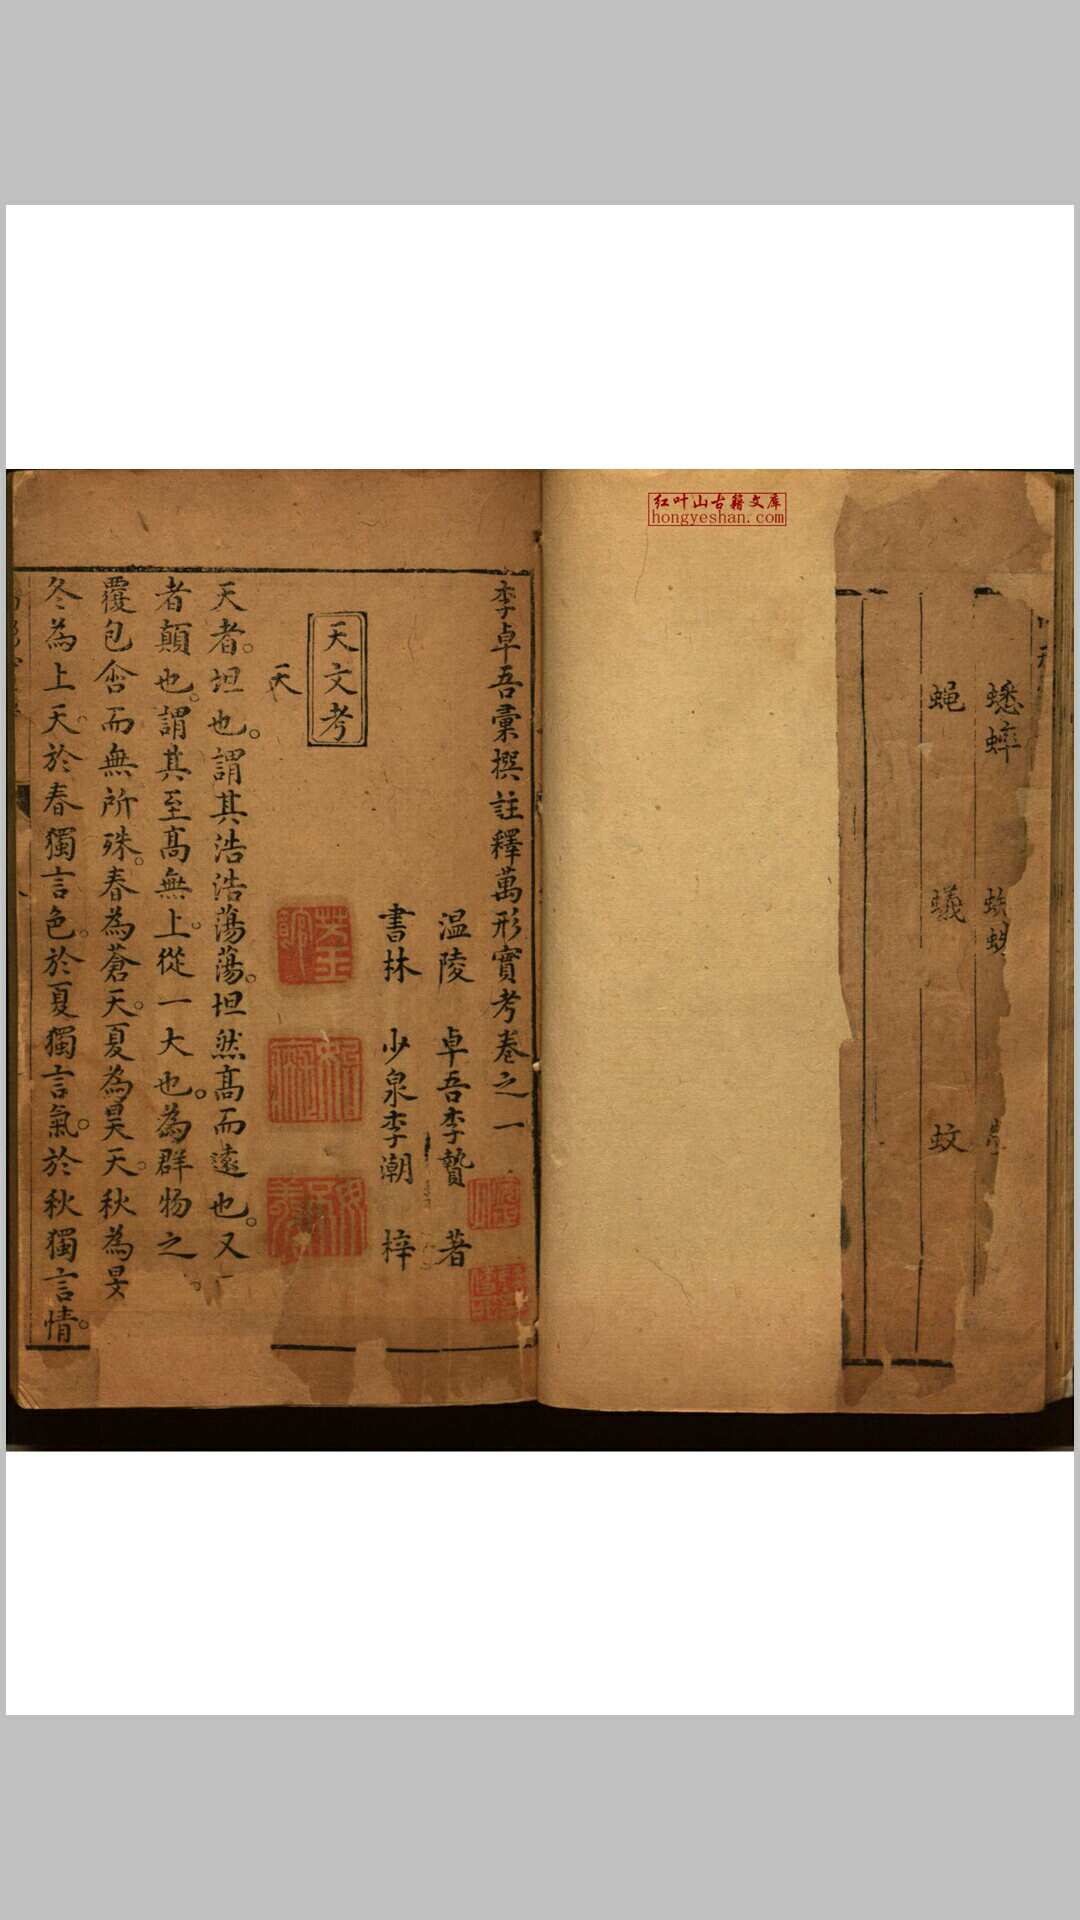 红叶山古籍文库
hongyeshan.com
蟋蟀
蝇 蟻 蚊
李卓吾彙撰註釋萬形實考卷之一
温陵 卓吾李贄 著
書林 少泉李潮 梓
天文考
天
天者。坦也。謂其浩浩蕩蕩。坦然高而遠也。又
者顛也。謂其至高無上。從一大也。為群物之
覆包含而無所殊。春為蒼天。夏為昊天。秋為旻
冬為上天。於春獨言色。於夏獨言氣。於秋獨言情。